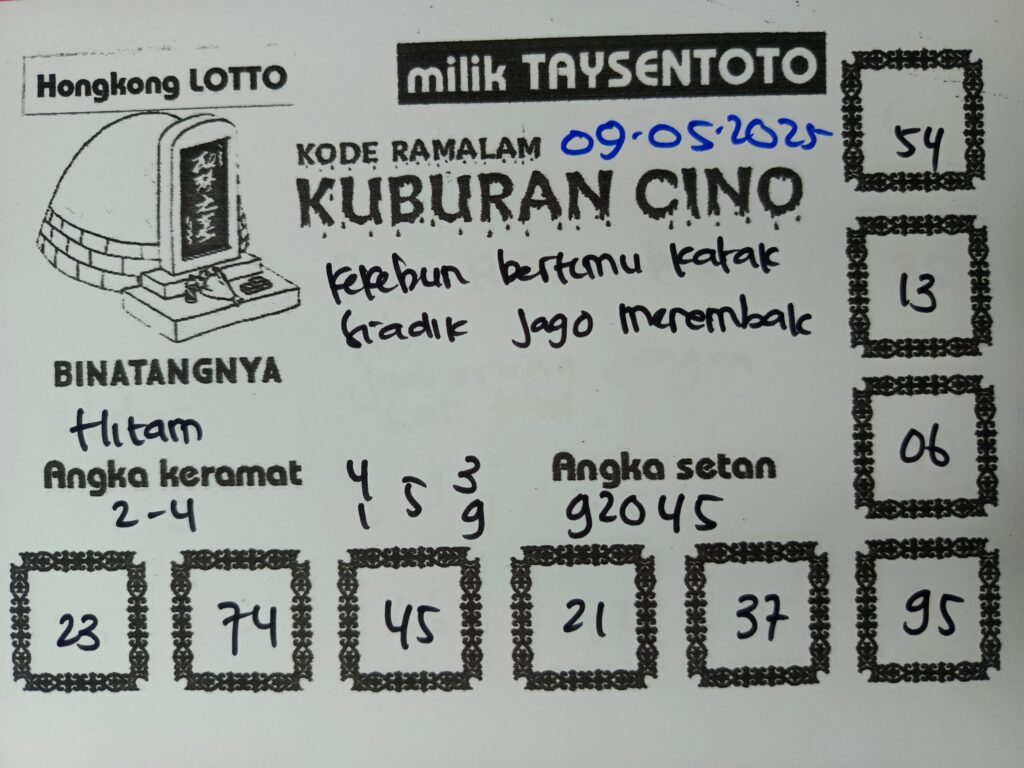 Hongkong LOTTO
milik TAYSENTOTO
KODE RAMALAM 09.05.2025
KUBURAN CINO
kekebun bertemu katak
siadik jago merembak
BINATANGNYA
Hitam
Angka keramat
2-4
4 3
5
1 9
Angka setan
92045
54
13
06
23 74 45 21 37 95